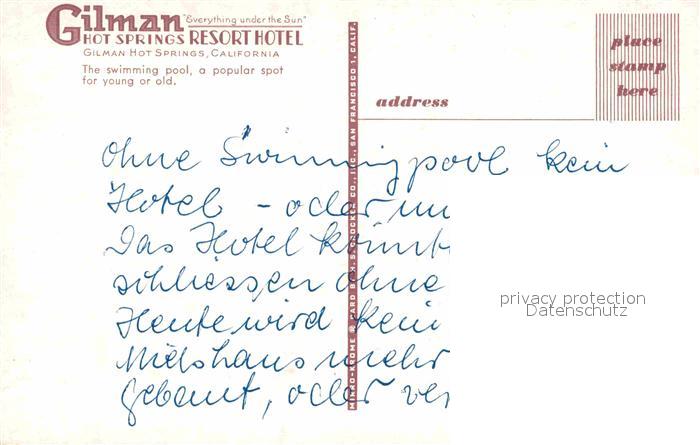 Gilman "Everything under the Sun"
HOT SPRINGS RESORT HOTEL
GILMAN HOT SPRINGS, CALIFORNIA
The swimming pool, a popular spot
for young or old.
place
stamp
here
address
MIRRO-KROME ® CARD BY H. S. CROCKER CO., INC., SAN FRANCISCO 1, CALIF.
ohne Swimmingpool kein
Hotel - oder nu
Das Hotel könnt
schliessen ohne
Heute wird kein
Miets haus mehr
gebaut, oder ver
privacy protection
Datenschutz